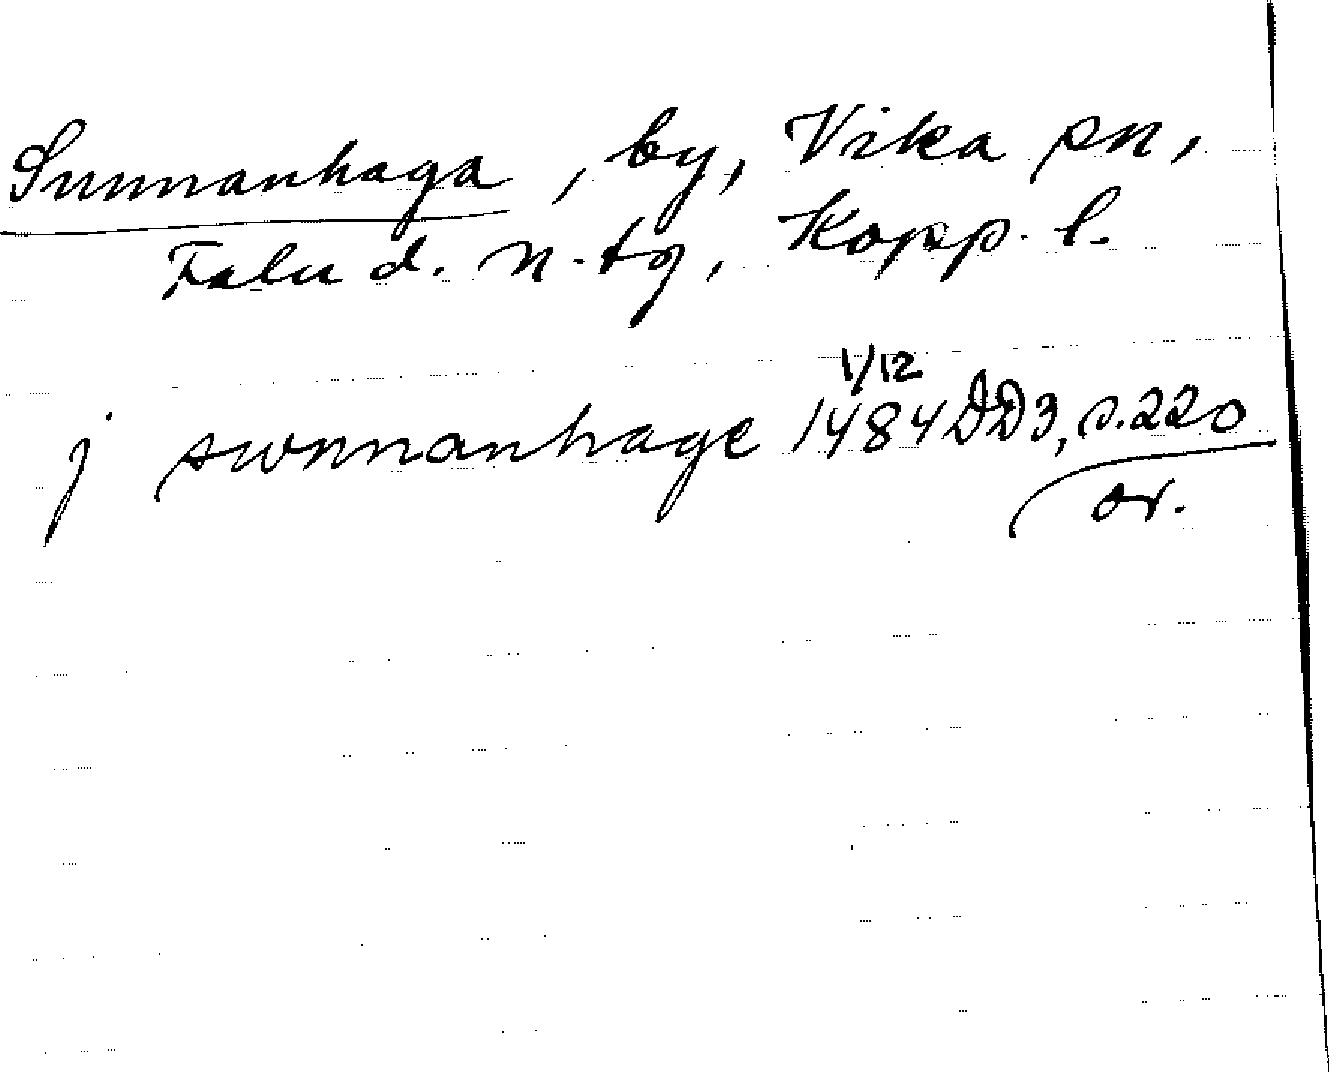 Sunnanhaga, by, Vika sn,
Falu d. n. tg, Kopp. l.
1/12
j swnnanhage 1484 DD3, s. 220
or.